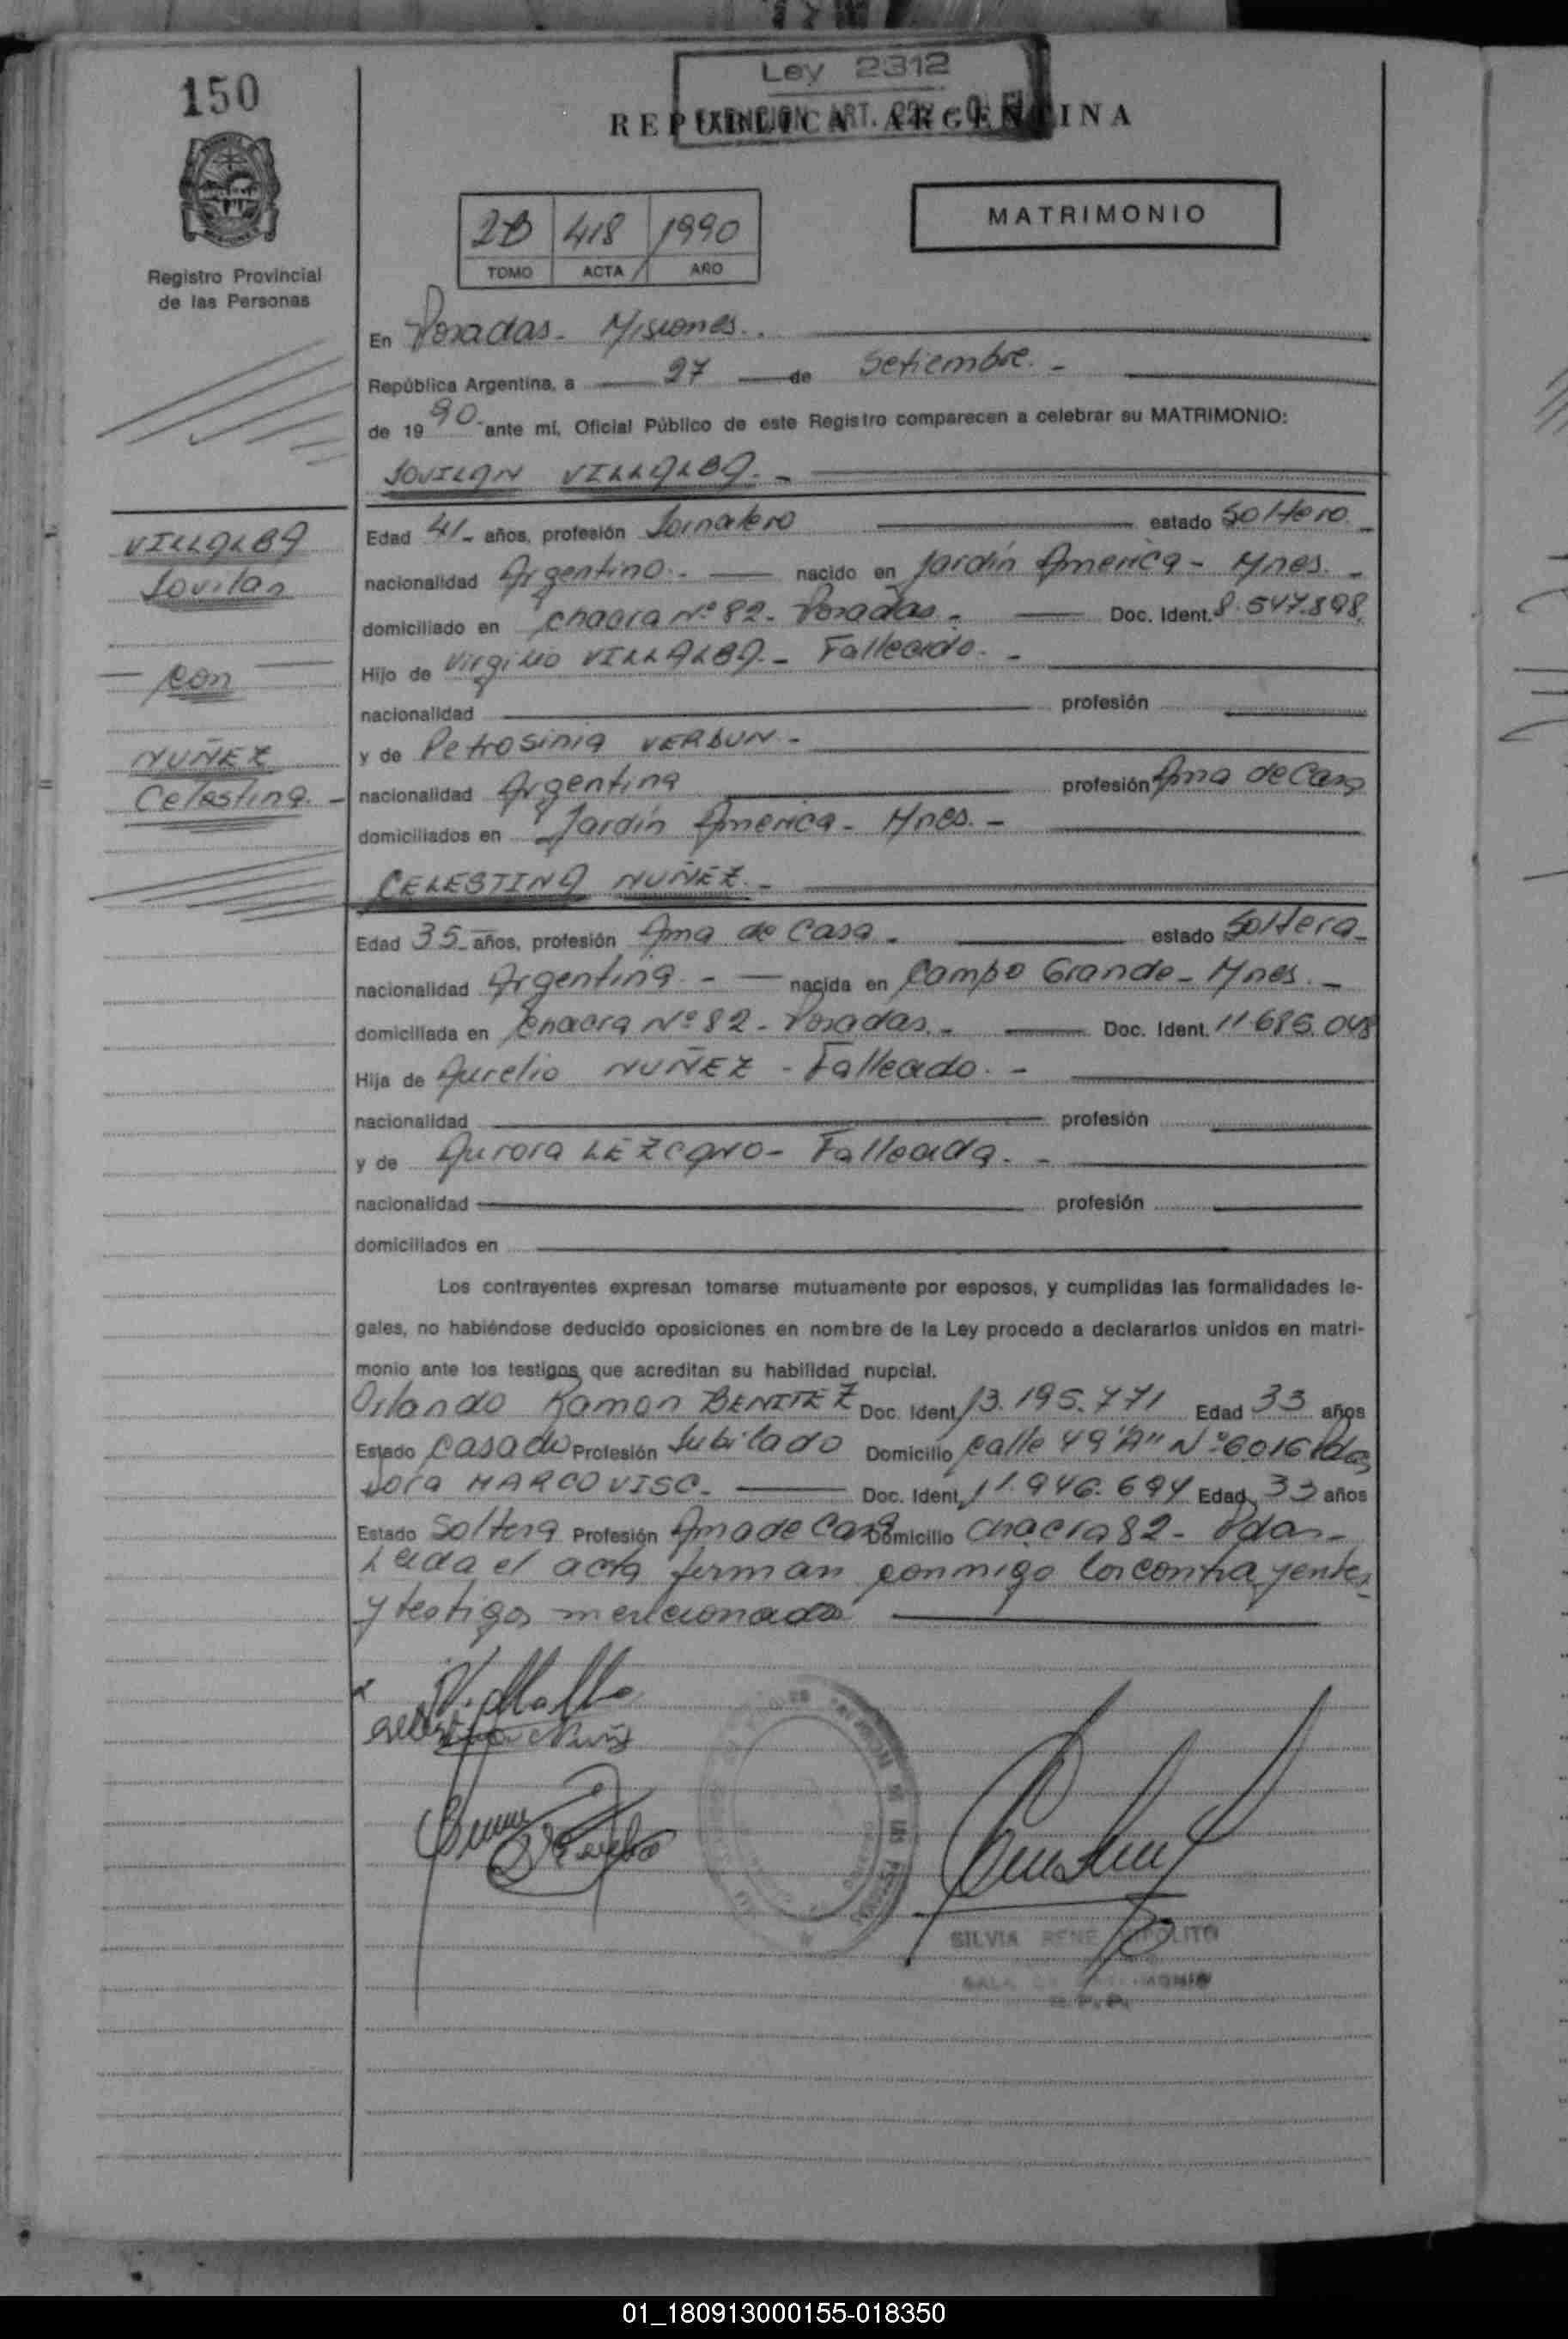 150
Ley 2312
REPUBLICA ARGENTINA
EXENCION ART.
MATRIMONIO
2B 418 1990
TOMO ACTA AÑO
Registro Provincial
de las Personas
En Posadas - Misiones.
República Argentina, a 27 de Setiembre. -
de 19 90 - ante mí, Oficial Público de este Registro comparecen a celebrar su MATRIMONIO:
JOVILAN VILLALBA. -
VILLALBA
Jovilan
con
NUÑEZ
Celestina. -
Edad 41 - años, profesión Jornalero estado Soltero -
nacionalidad Argentino. - nacido en Jardín America - Mnes. -
domiciliado en Chacra Nº 82 - Posadas - Doc. Ident. 8.547.898.
Hijo de Virgilio VILLALBA. - Fallecido. -
nacionalidad profesión
y de Petrosinia VERDUN -
nacionalidad Argentina profesión Ama de Casa
domiciliados en Jardín America - Mnes. -
CELESTINA NUÑEZ. -
Edad 35 - años, profesión Ama de Casa - estado Soltera -
nacionalidad Argentina. - nacida en Campo Grande - Mnes. -
domiciliada en Chacra Nº 82 - Posadas. - Doc. Ident. 11.685.048
Hija de Aurelio NUÑEZ - Fallecido. -
nacionalidad profesión
y de Aurora LEZCANO - Fallecida. -
nacionalidad profesión
domiciliados en
Los contrayentes expresan tomarse mutuamente por esposos, y cumplidas las formalidades le-
gales, no habiéndose deducido oposiciones en nombre de la Ley procedo a declararlos unidos en matri-
monio ante los testigos que acreditan su habilidad nupcial.
Orlando Ramon BENITEZ Doc. Ident. 13.195.771 Edad 33 años
Estado Casado Profesión Jubilado Domicilio Calle 49 "A" Nº 6016 Pdas
Dora MARCOVISC. - Doc. Ident. 11.946.694 Edad 33 años
Estado Soltera Profesión Ama de Casa Domicilio Chacra 82 - Pdas -
Leida el acta firman conmigo los contrayentes
y testigos mencionados
SILVIA RENE HIPOLITO
01_180913000155-018350